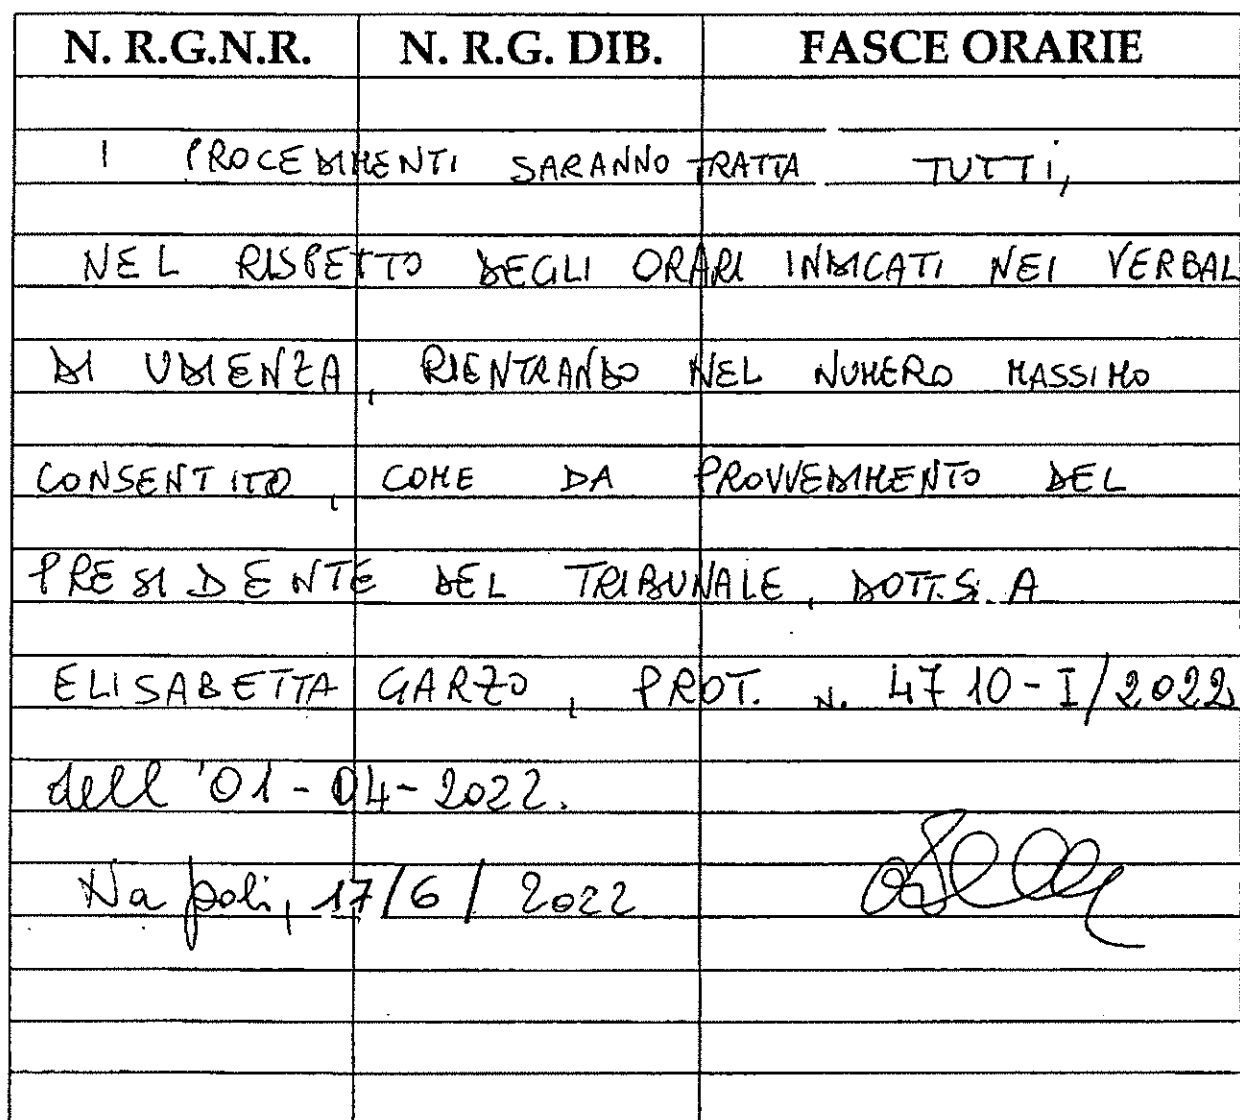 N. R.G.N.R. N. R.G. DIB. FASCE ORARIE
I PROCEDIMENTI SARANNO TRATTA TUTTI,
NEL RISPETTO DEGLI ORARI INDICATI NEI VERBAL
DI UDIENZA, RIENTRANDO NEL NUMERO MASSIMO
CONSENTITO, COME DA PROVVEDIMENTO DEL
PRESIDENTE DEL TRIBUNALE, DOTT.S.A
ELISABETTA GARZO, PROT. N. 4710-I/2022
dell'01-04-2022.
Napoli, 17/6/2022